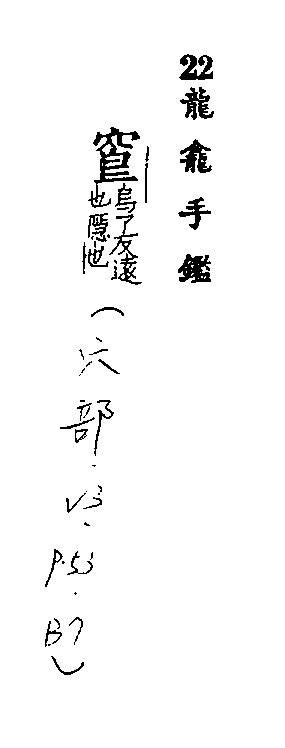 22龍龕手鑑
烏了反遠
也隱也
(穴部.V3.P.53.B7)